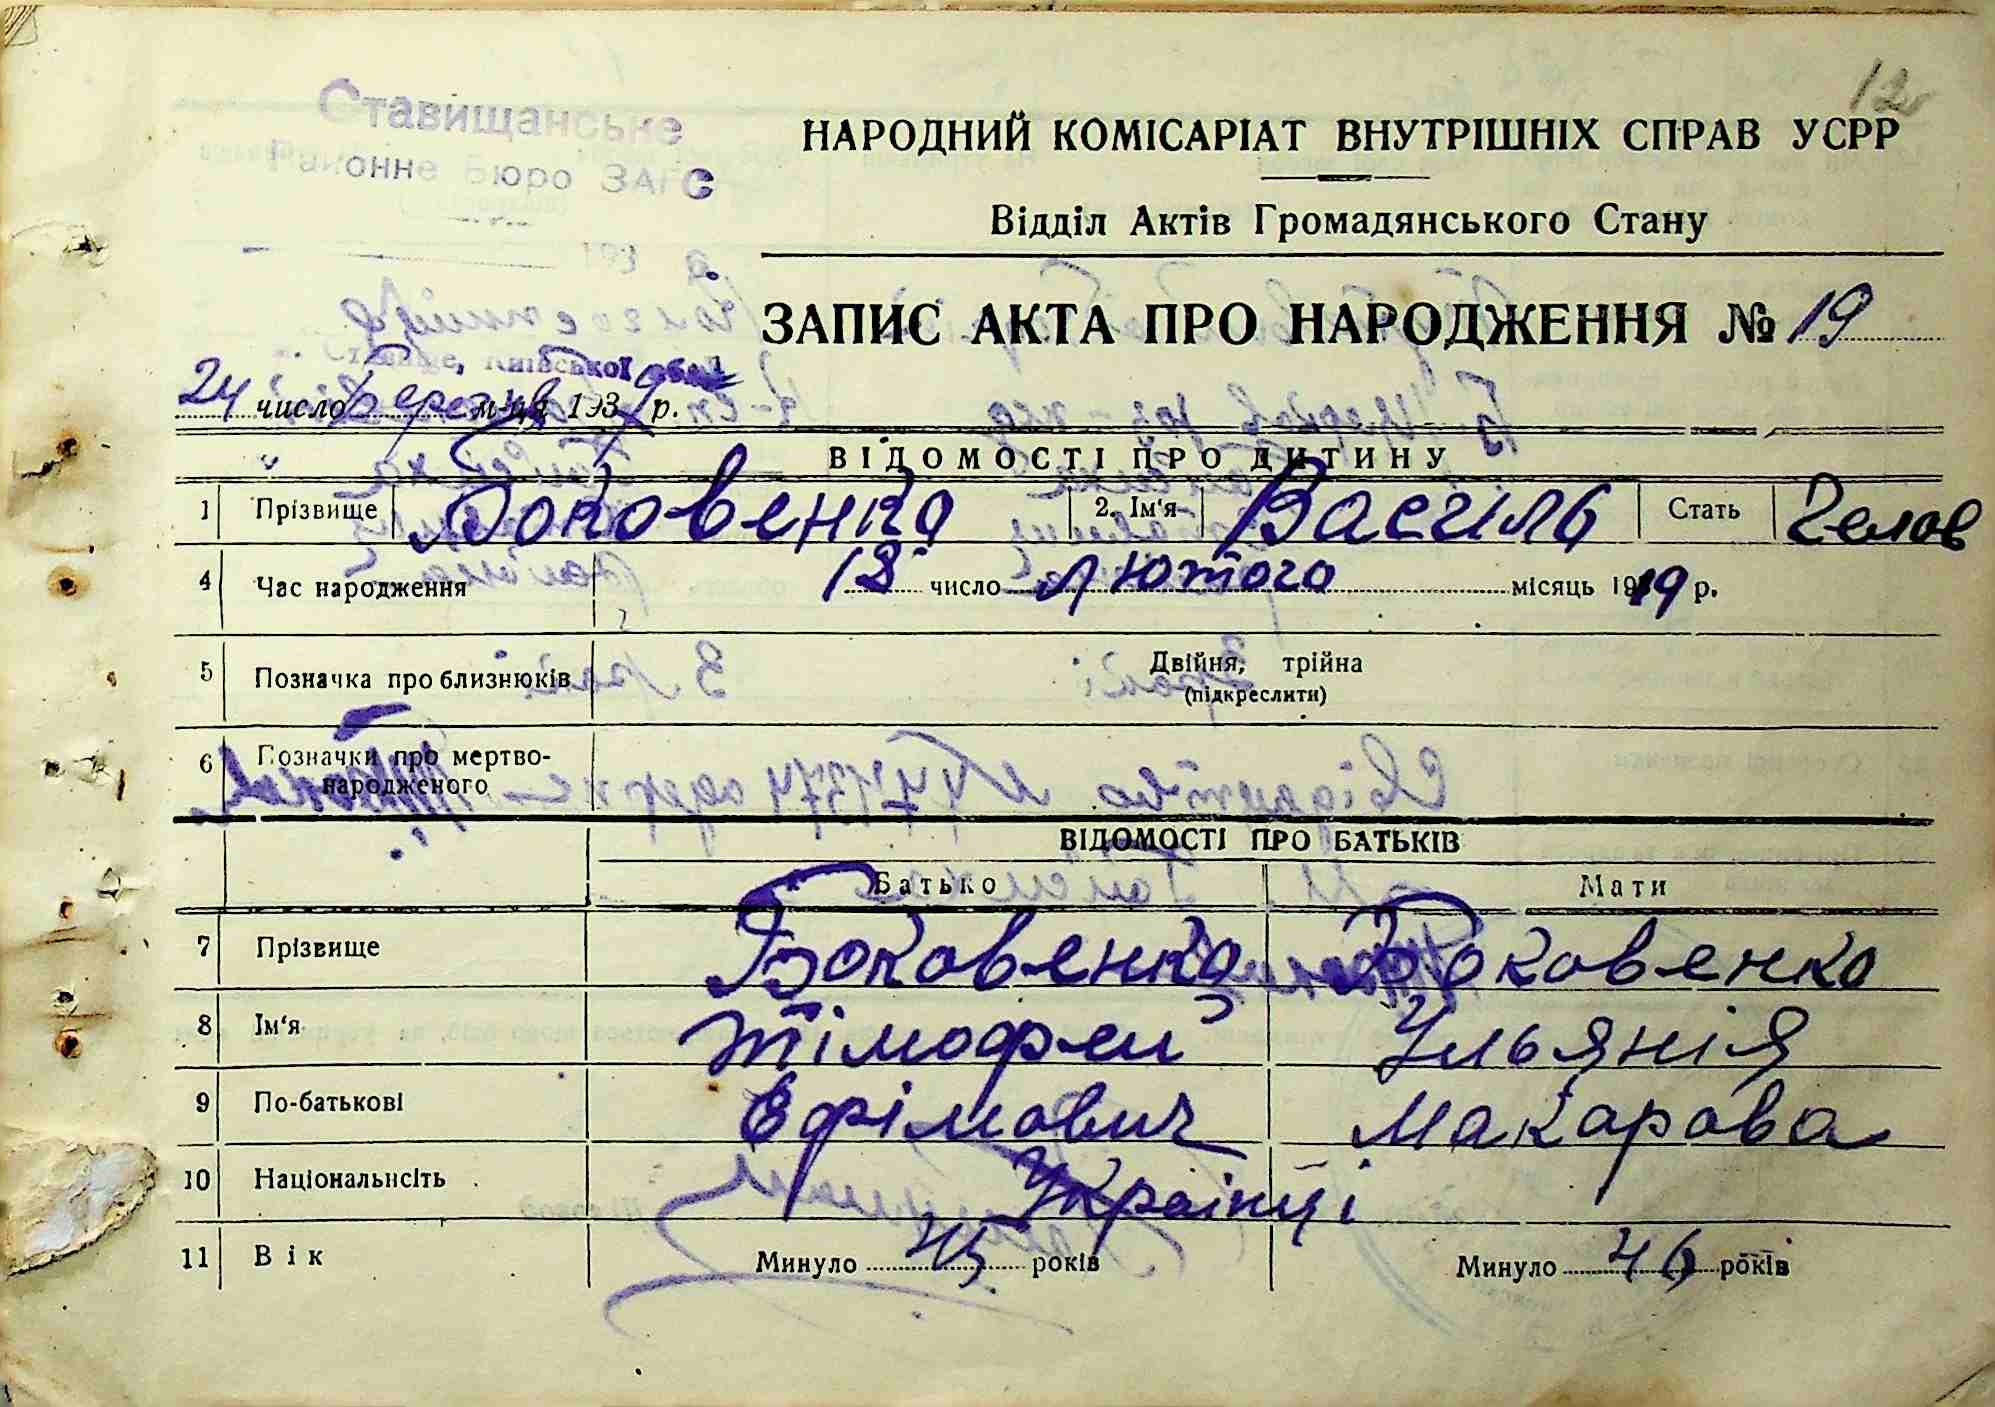 12
Ставищанське
Районне Бюро ЗАГС
193 р.
НАРОДНИЙ КОМІСАРІАТ ВНУТРІШНІХ СПРАВ УСРР
Відділ Актів Громадянського Стану
ЗАПИС АКТА ПРО НАРОДЖЕННЯ № 19
Київської обл.
24 число березня м-ця 1937 р.
ВІДОМОСТІ ПРО ДИТИНУ
1 Прізвище Боковенко 2. Ім'я Василь Стать Челов
4 Час народження 18 число Лютого місяць 1919 р.
5 Позначка про близнюків Двійня, трійна
(підкреслити)
6 Позначки про мертво-
народженого
ВІДОМОСТІ ПРО БАТЬКІВ
Батько Мати
7 Прізвище Боковенко Боковенко
8 Ім'я Тімофей Ульянія
9 По-батькові Ефімович Макарова
10 Національнсіть Українці
11 Вік Минуло 45 років Минуло 46 років